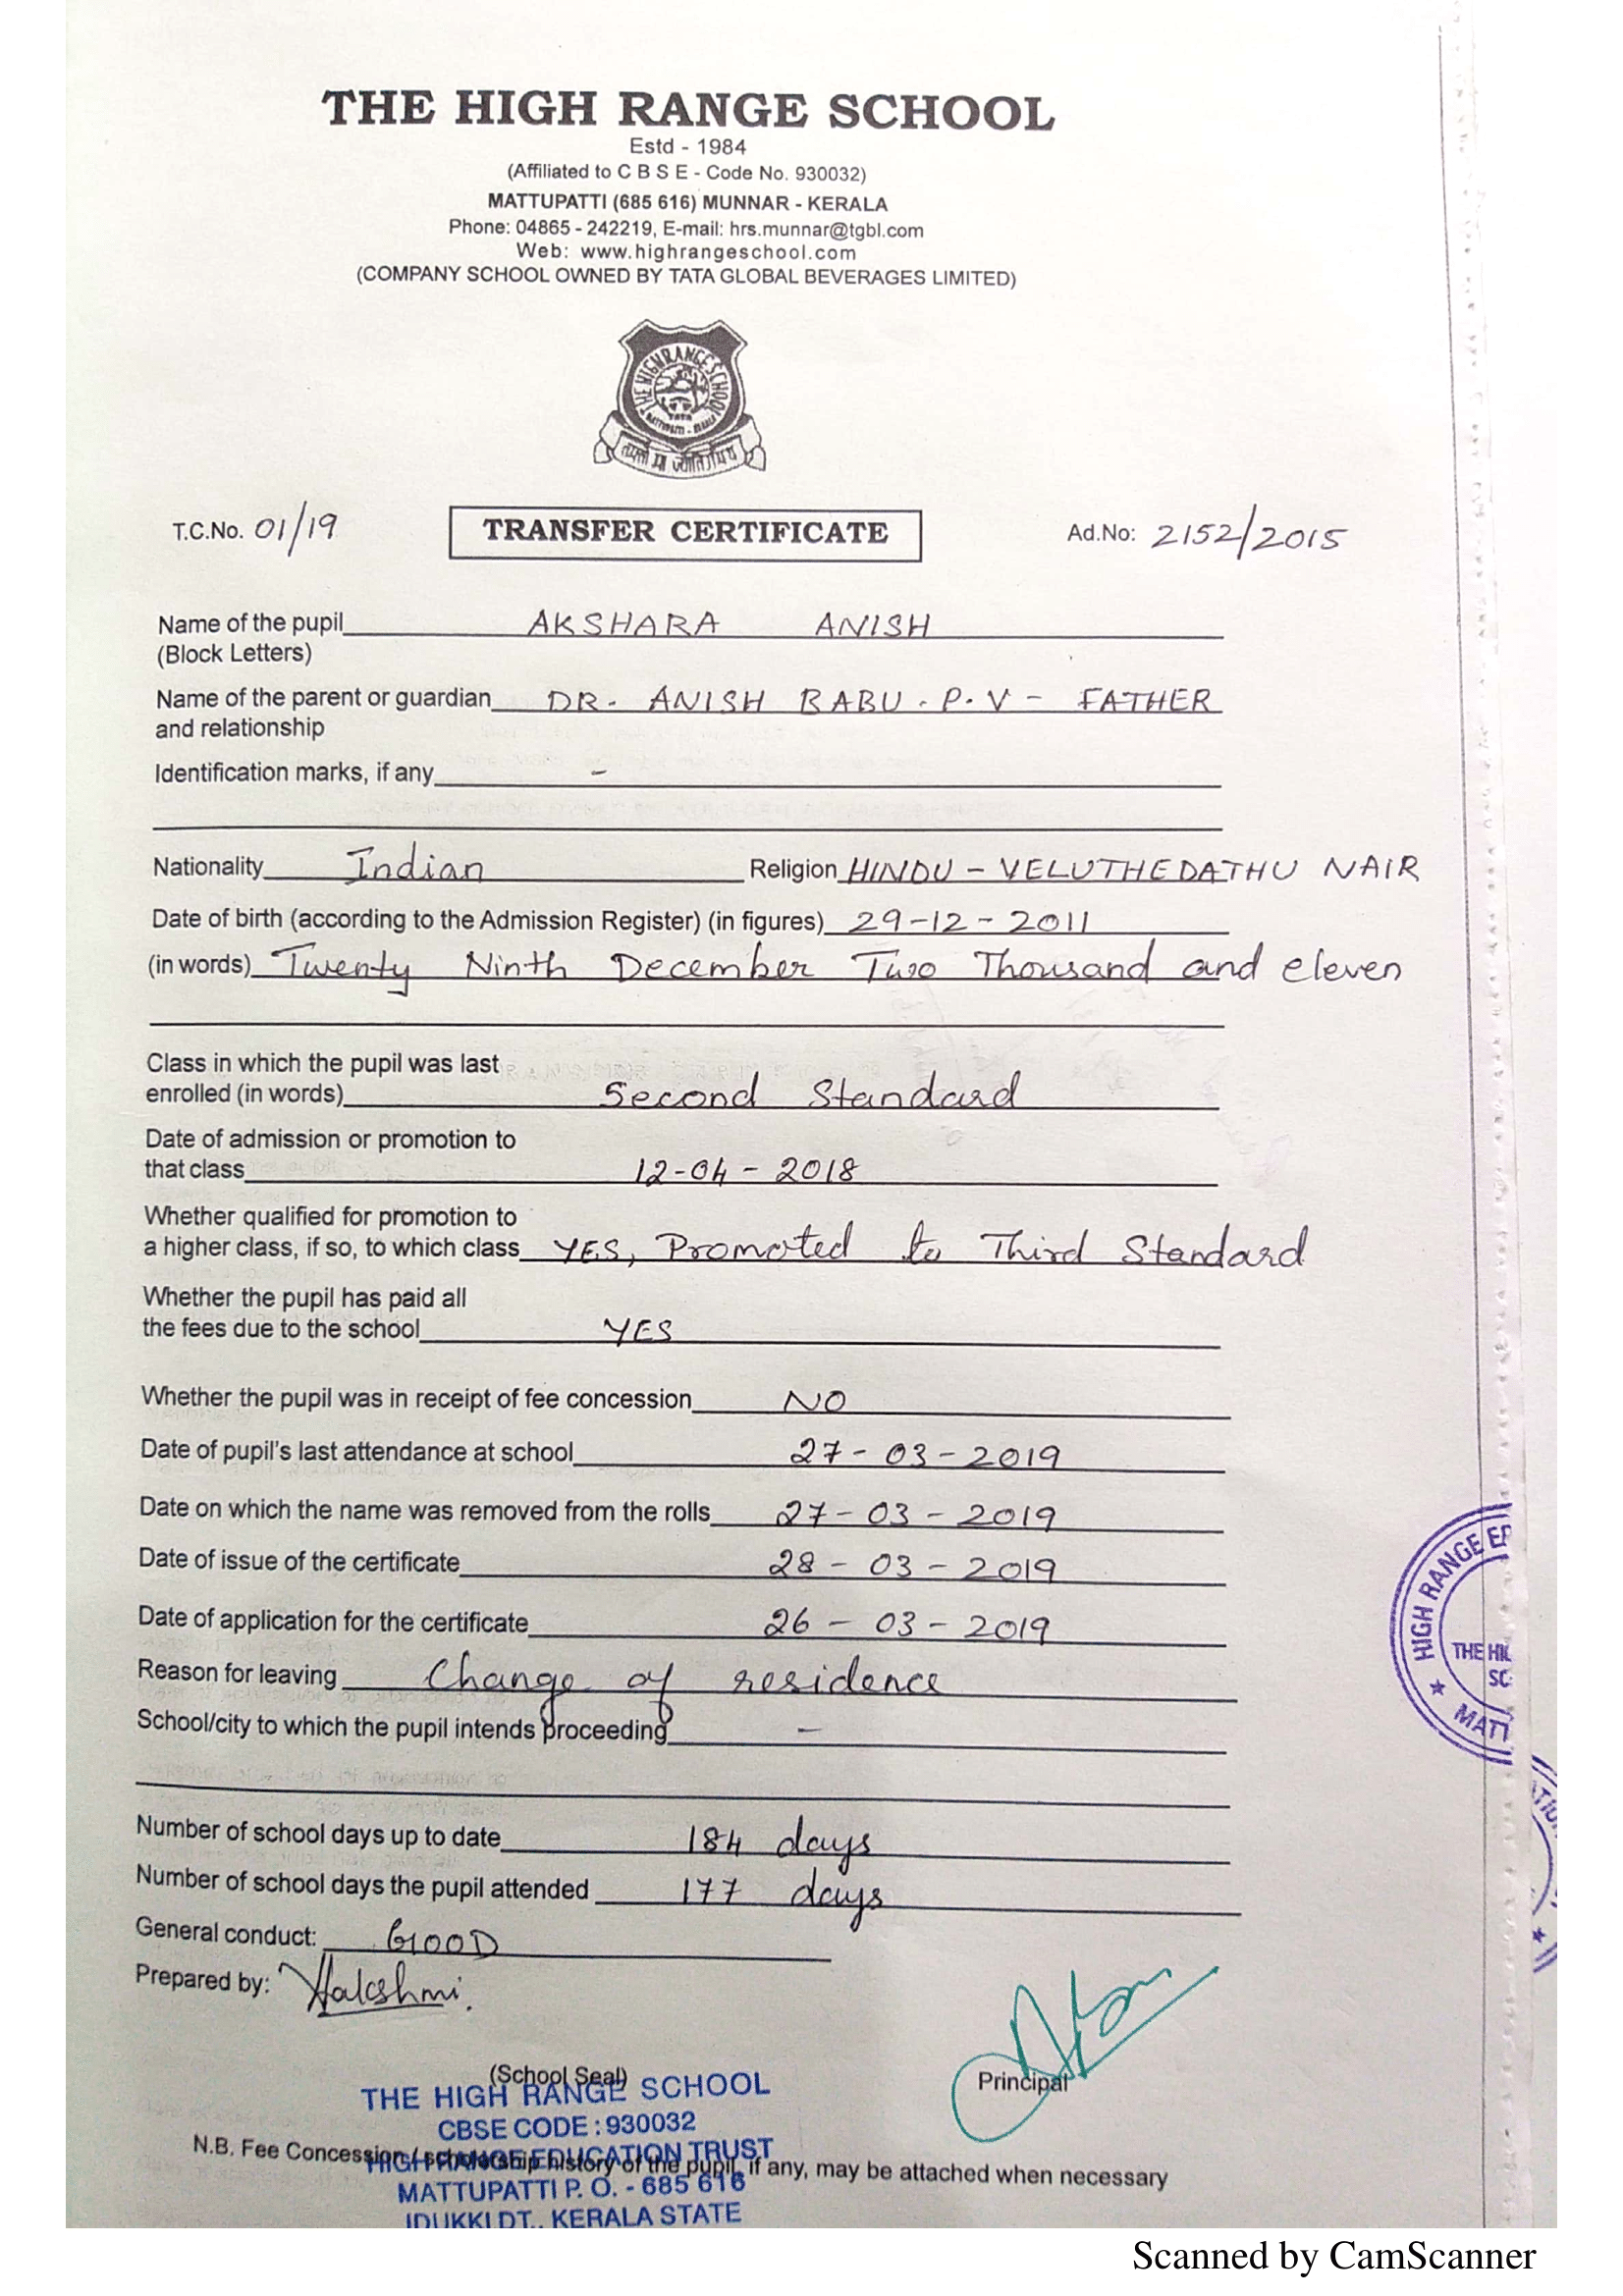 THE HIGH RANGE SCHOOL
Estd - 1984
(Affiliated to C B S E - Code No. 930032)
MATTUPATTI (685 616) MUNNAR - KERALA
Phone: 04865 - 242219, E-mail: hrs.munnar@tgbl.com
Web: www.highrangeschool.com
(COMPANY SCHOOL OWNED BY TATA GLOBAL BEVERAGES LIMITED)
THE HIGH RANGE SCHOOL
TATA
तमसो मा ज्योतिर्गमय
T.C.No. 01/19 TRANSFER CERTIFICATE Ad.No: 2152/2015
Name of the pupil AKSHARA ANISH
(Block Letters)
Name of the parent or guardian DR. ANISH BABU . P. V - FATHER
and relationship
Identification marks, if any -
Nationality Indian Religion HINDU - VELUTHEDATHU NAIR
Date of birth (according to the Admission Register) (in figures) 29-12-2011
(in words) Twenty Ninth December Two Thousand and eleven
Class in which the pupil was last
enrolled (in words) Second Standard
Date of admission or promotion to
that class 12-04-2018
Whether qualified for promotion to
a higher class, if so, to which class YES, Promoted to Third Standard
Whether the pupil has paid all
the fees due to the school YES
Whether the pupil was in receipt of fee concession NO
Date of pupil's last attendance at school 27-03-2019
Date on which the name was removed from the rolls 27-03-2019
Date of issue of the certificate 28-03-2019
Date of application for the certificate 26-03-2019
Reason for leaving Change of residence
School/city to which the pupil intends proceeding -
HIGH RANGE ED
THE HI
SC
★ MATT
Number of school days up to date 184 days
Number of school days the pupil attended 177 days
General conduct: GOOD
Prepared by:
(School Seal)
Principal
THE HIGH RANGE SCHOOL
CBSE CODE : 930032
N.B. Fee Concession / scholarship history of the pupil, if any, may be attached when necessary
HIGH RANGE EDUCATION TRUST
MATTUPATTI P. O. - 685 616
IDUKKI DT., KERALA STATE
Scanned by CamScanner